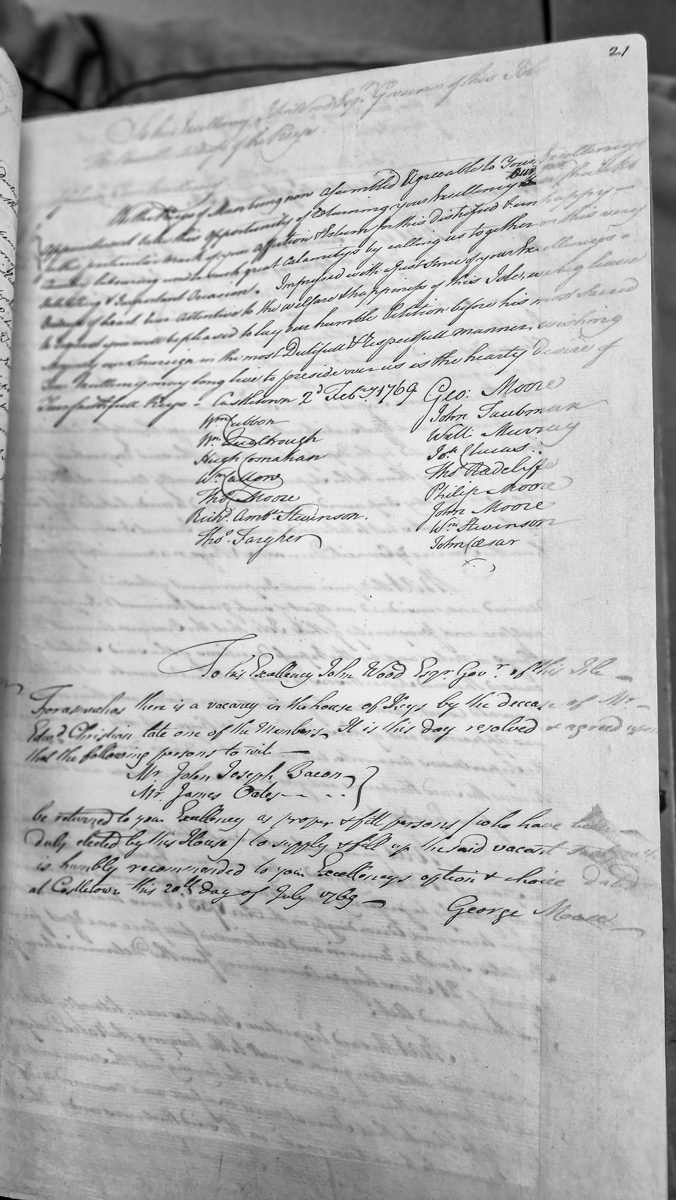 21
To his Excellency John Wood Esqr. Governor of this Isle
The Humble Address of the Keys.
We the Keys of Mann being now assembled Agreeable to Your Excellencys
Appointment take this opportunity of returning your Excellency our
for the particular mark of your affection & Esteem for this distressed & unhappy
Country labouring under such great Calamitys by calling us together on this very
& Important Occasion. Impressed with a just Sence of your Excellencys
kind Attention to the welfare & happyness of this Isle, we beg leave
to request you will be pleased to lay our humble Petition before his most Sacred
Majesty our Sovereign in the most Dutifull & Respectfull manner, wishing
your Excellency may long live to preside over us is the hearty desire of
Your faithfull Keys. Castletown 2d. Febry. 1769 Geo: Moore
Wm. Cubbon John Taubman
Wm. Quillrough Will: Murray
Hugh Cosnahan Jon. Clucas
Wm. Callow Thos. Radcliff
Thos. Moore Philip Moore
Richd. Ambs. Stevinson. John Moore
Thos. Fargher Wm. Stevinson
John Cæsar
To his Excellency John Wood Esqr. Govr. of this Isle
Forasmuch as there is a vacancy in the house of Keys by the decease of Mr.
Edwd. Christian late one of the Members, It is this day resolved & agreed upon
that the following persons to wit
Mr. John Joseph Bacon
Mr. James Oates
be returned to your Excellency as proper & fitt persons (who have been
duly elected by this House) to supply & fill up the said vacant
is humbly recommended to your Excellencys option & choice dated
at Castletown this 20th. Day of July 1769
George Moore